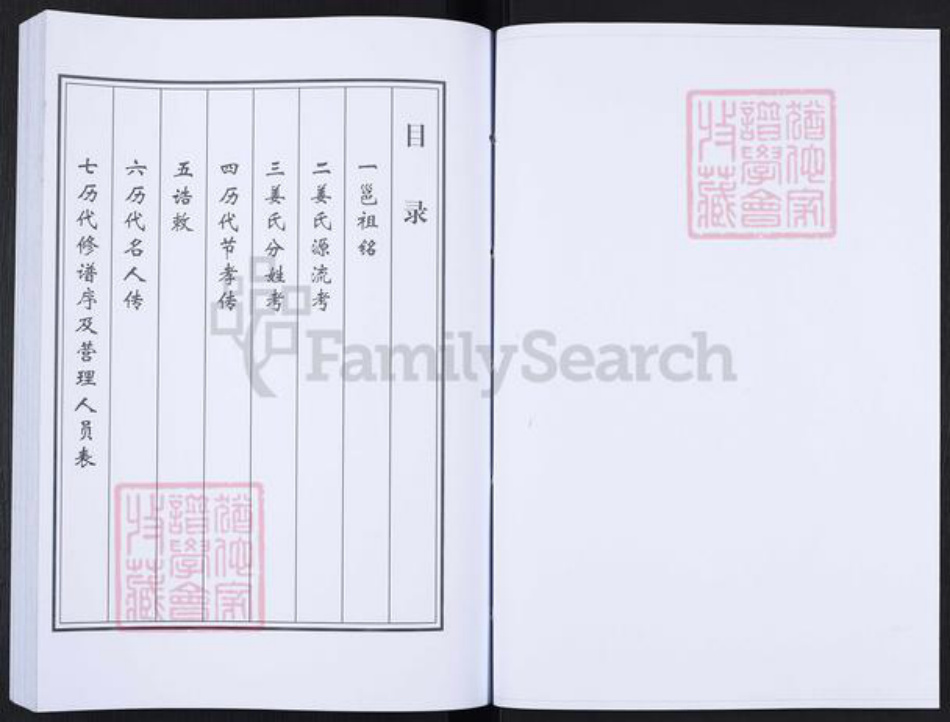 目录
一邕祖铭
二姜氏源流考
三姜氏分姓考
四历代节孝传
五诰敕
六历代名人传
七历代修谱序及营理人员表
FamilySearch
猶他家
譜學會
收藏
猶他家
譜學會
收藏